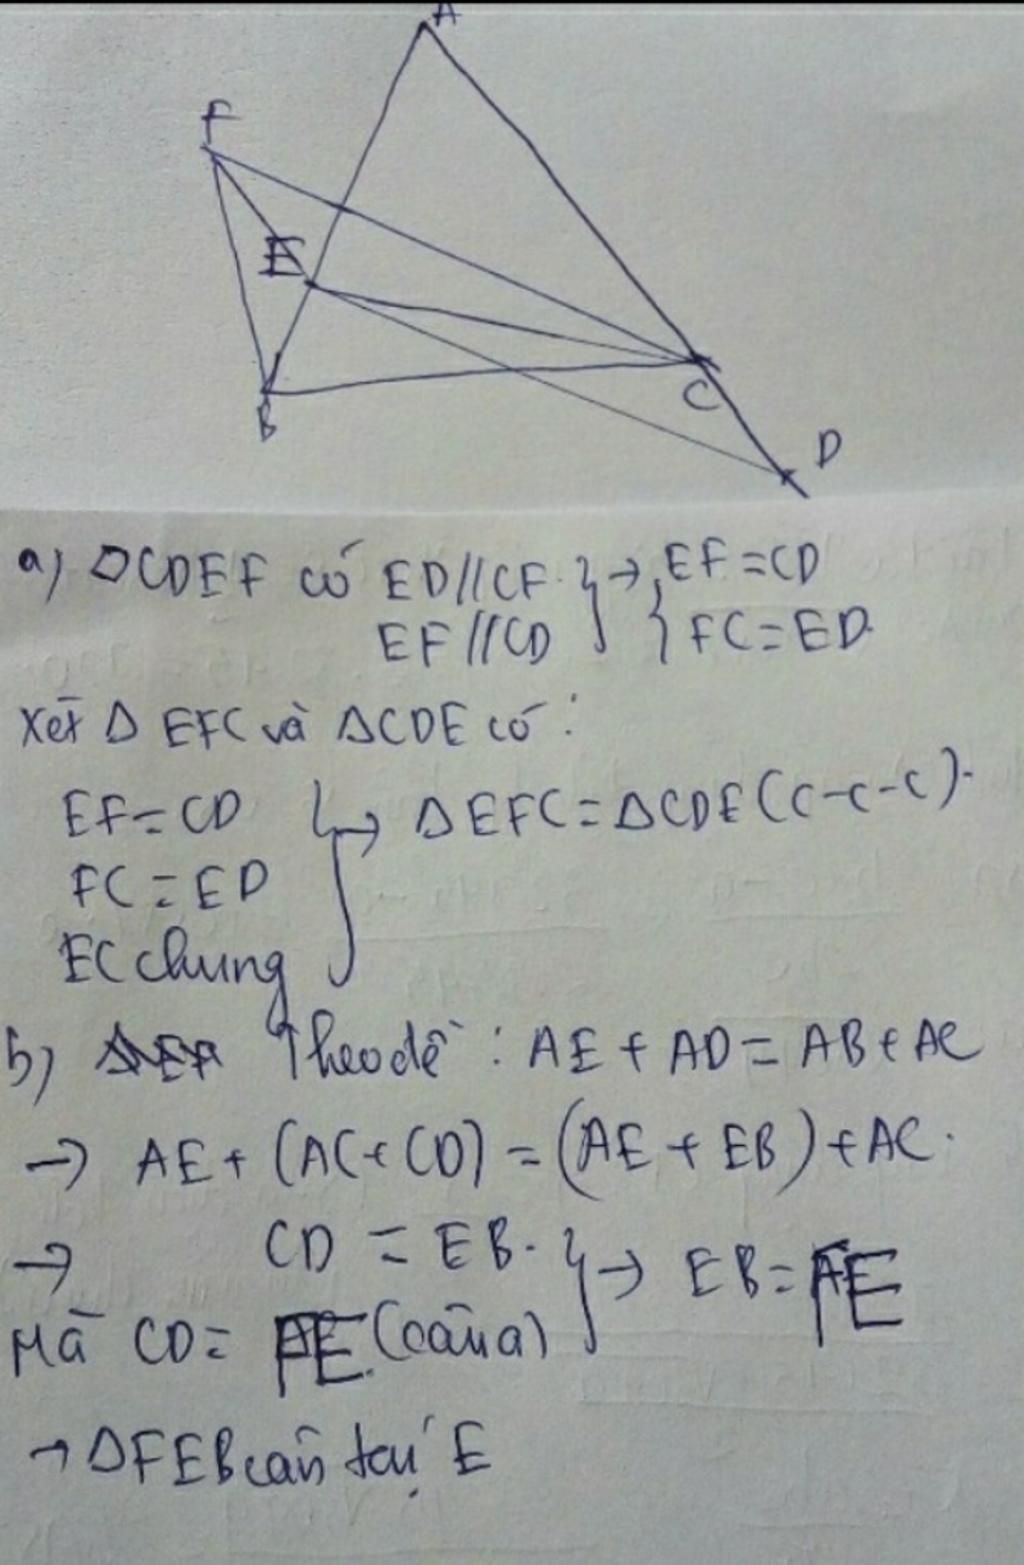 A
F
E
B
C
D
a) ▱CDEF có ED//CF } → { EF = CD
EF//CD FC = ED.
Xét Δ EFC và ΔCDE có:
EF = CD } → ΔEFC = ΔCDE (c-c-c).
FC = ED
EC chung
b) Theo đề: AE + AD = AB + AC
→ AE + (AC + CD) = (AE + EB) + AC.
→ CD = EB. } → EB = FE
Mà CD = FE. (câu a)
→ ΔFEB cân tại E